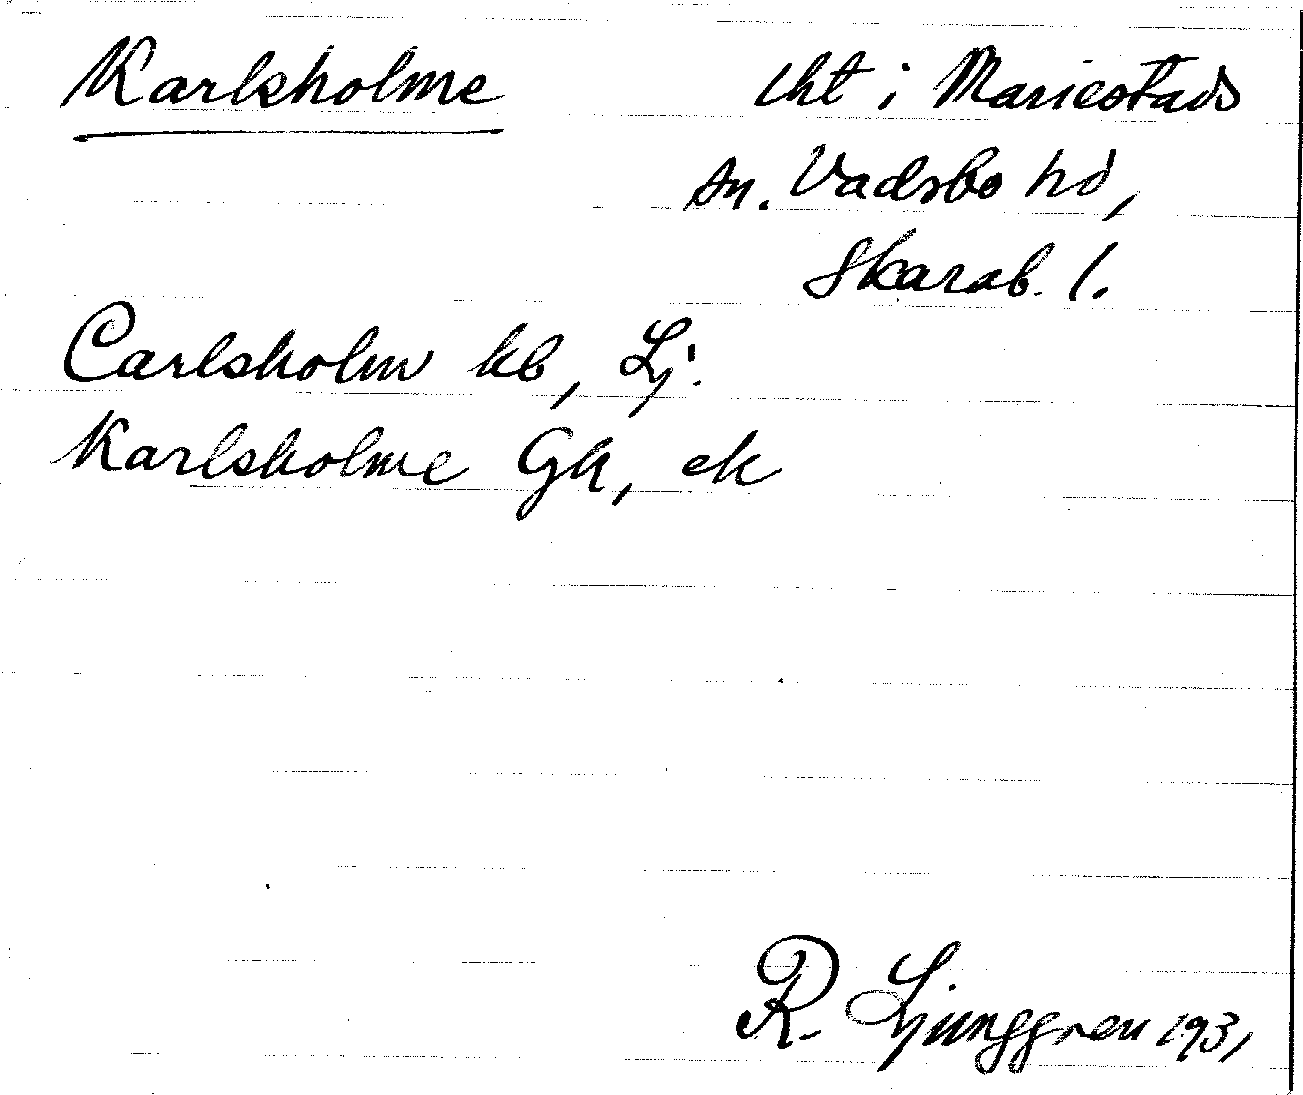 Karlsholme
lht i Mariestads
sn. Vadsbo hd,
Skarab. l.
Carlsholm kb, Lj.
Karlsholme Gk, ek
R. Ljunggren 1931